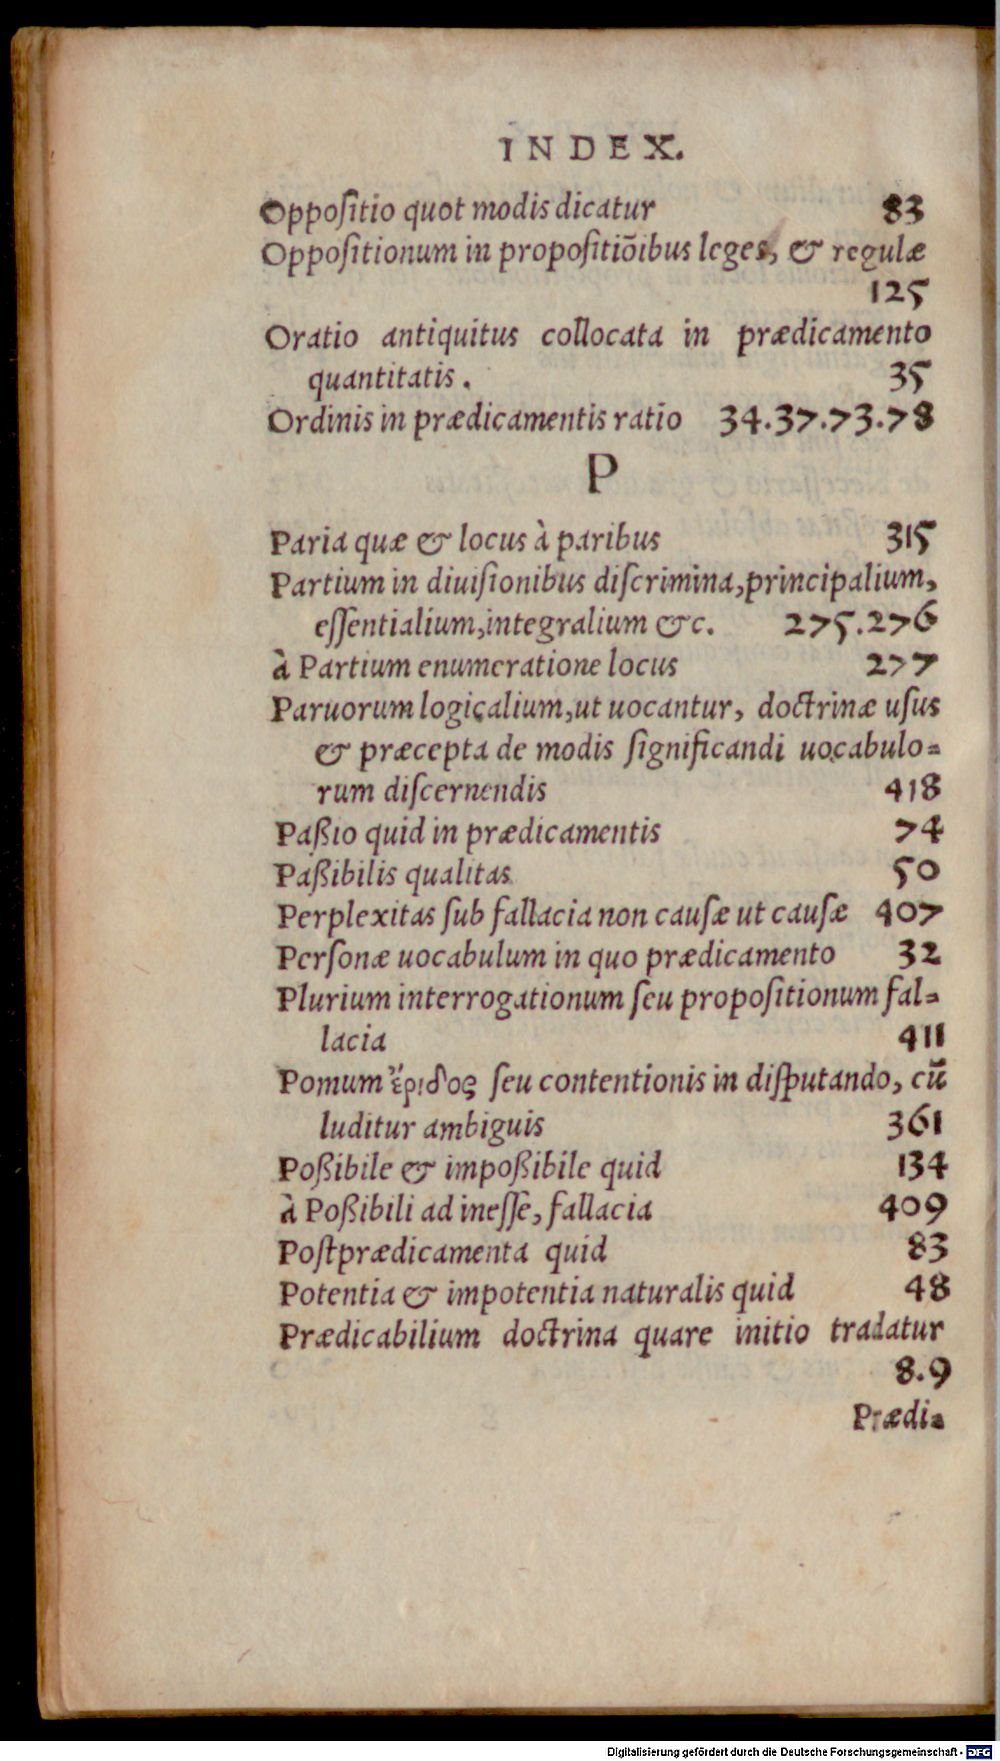 INDEX.
Oppoſitio quot modis dicatur 83
Oppoſitionum in propoſitiõibus leges, & regulæ
125
Oratio antiquitus collocata in prædicamento
quantitatis. 35
Ordinis in prædicamentis ratio 34.37.73.78
P
Paria quæ & locus à paribus 315
Partium in diuiſionibus diſcrimina,principalium,
eſſentialium,integralium &c. 275.276
à Partium enumeratione locus 277
Paruorum logicalium,ut uocantur, doctrinæ uſus
& præcepta de modis ſignificandi uocabulo=
rum diſcernendis 418
Paßio quid in prædicamentis 74
Paßibilis qualitas 50
Perplexitas ſub fallacia non cauſæ ut cauſæ 407
Perſonæ uocabulum in quo prædicamento 32
Plurium interrogationum ſeu propoſitionum fal=
lacia 411
Pomum ἔριδος ſeu contentionis in diſputando, cũ
luditur ambiguis 361
Poßibile & impoßibile quid 134
à Poßibili ad ineſſe, fallacia 409
Poſtprædicamenta quid 83
Potentia & impotentia naturalis quid 48
Prædicabilium doctrina quare initio tradatur
8.9
Prædi=
Digitalisierung gefördert durch die Deutsche Forschungsgemeinschaft - DFG